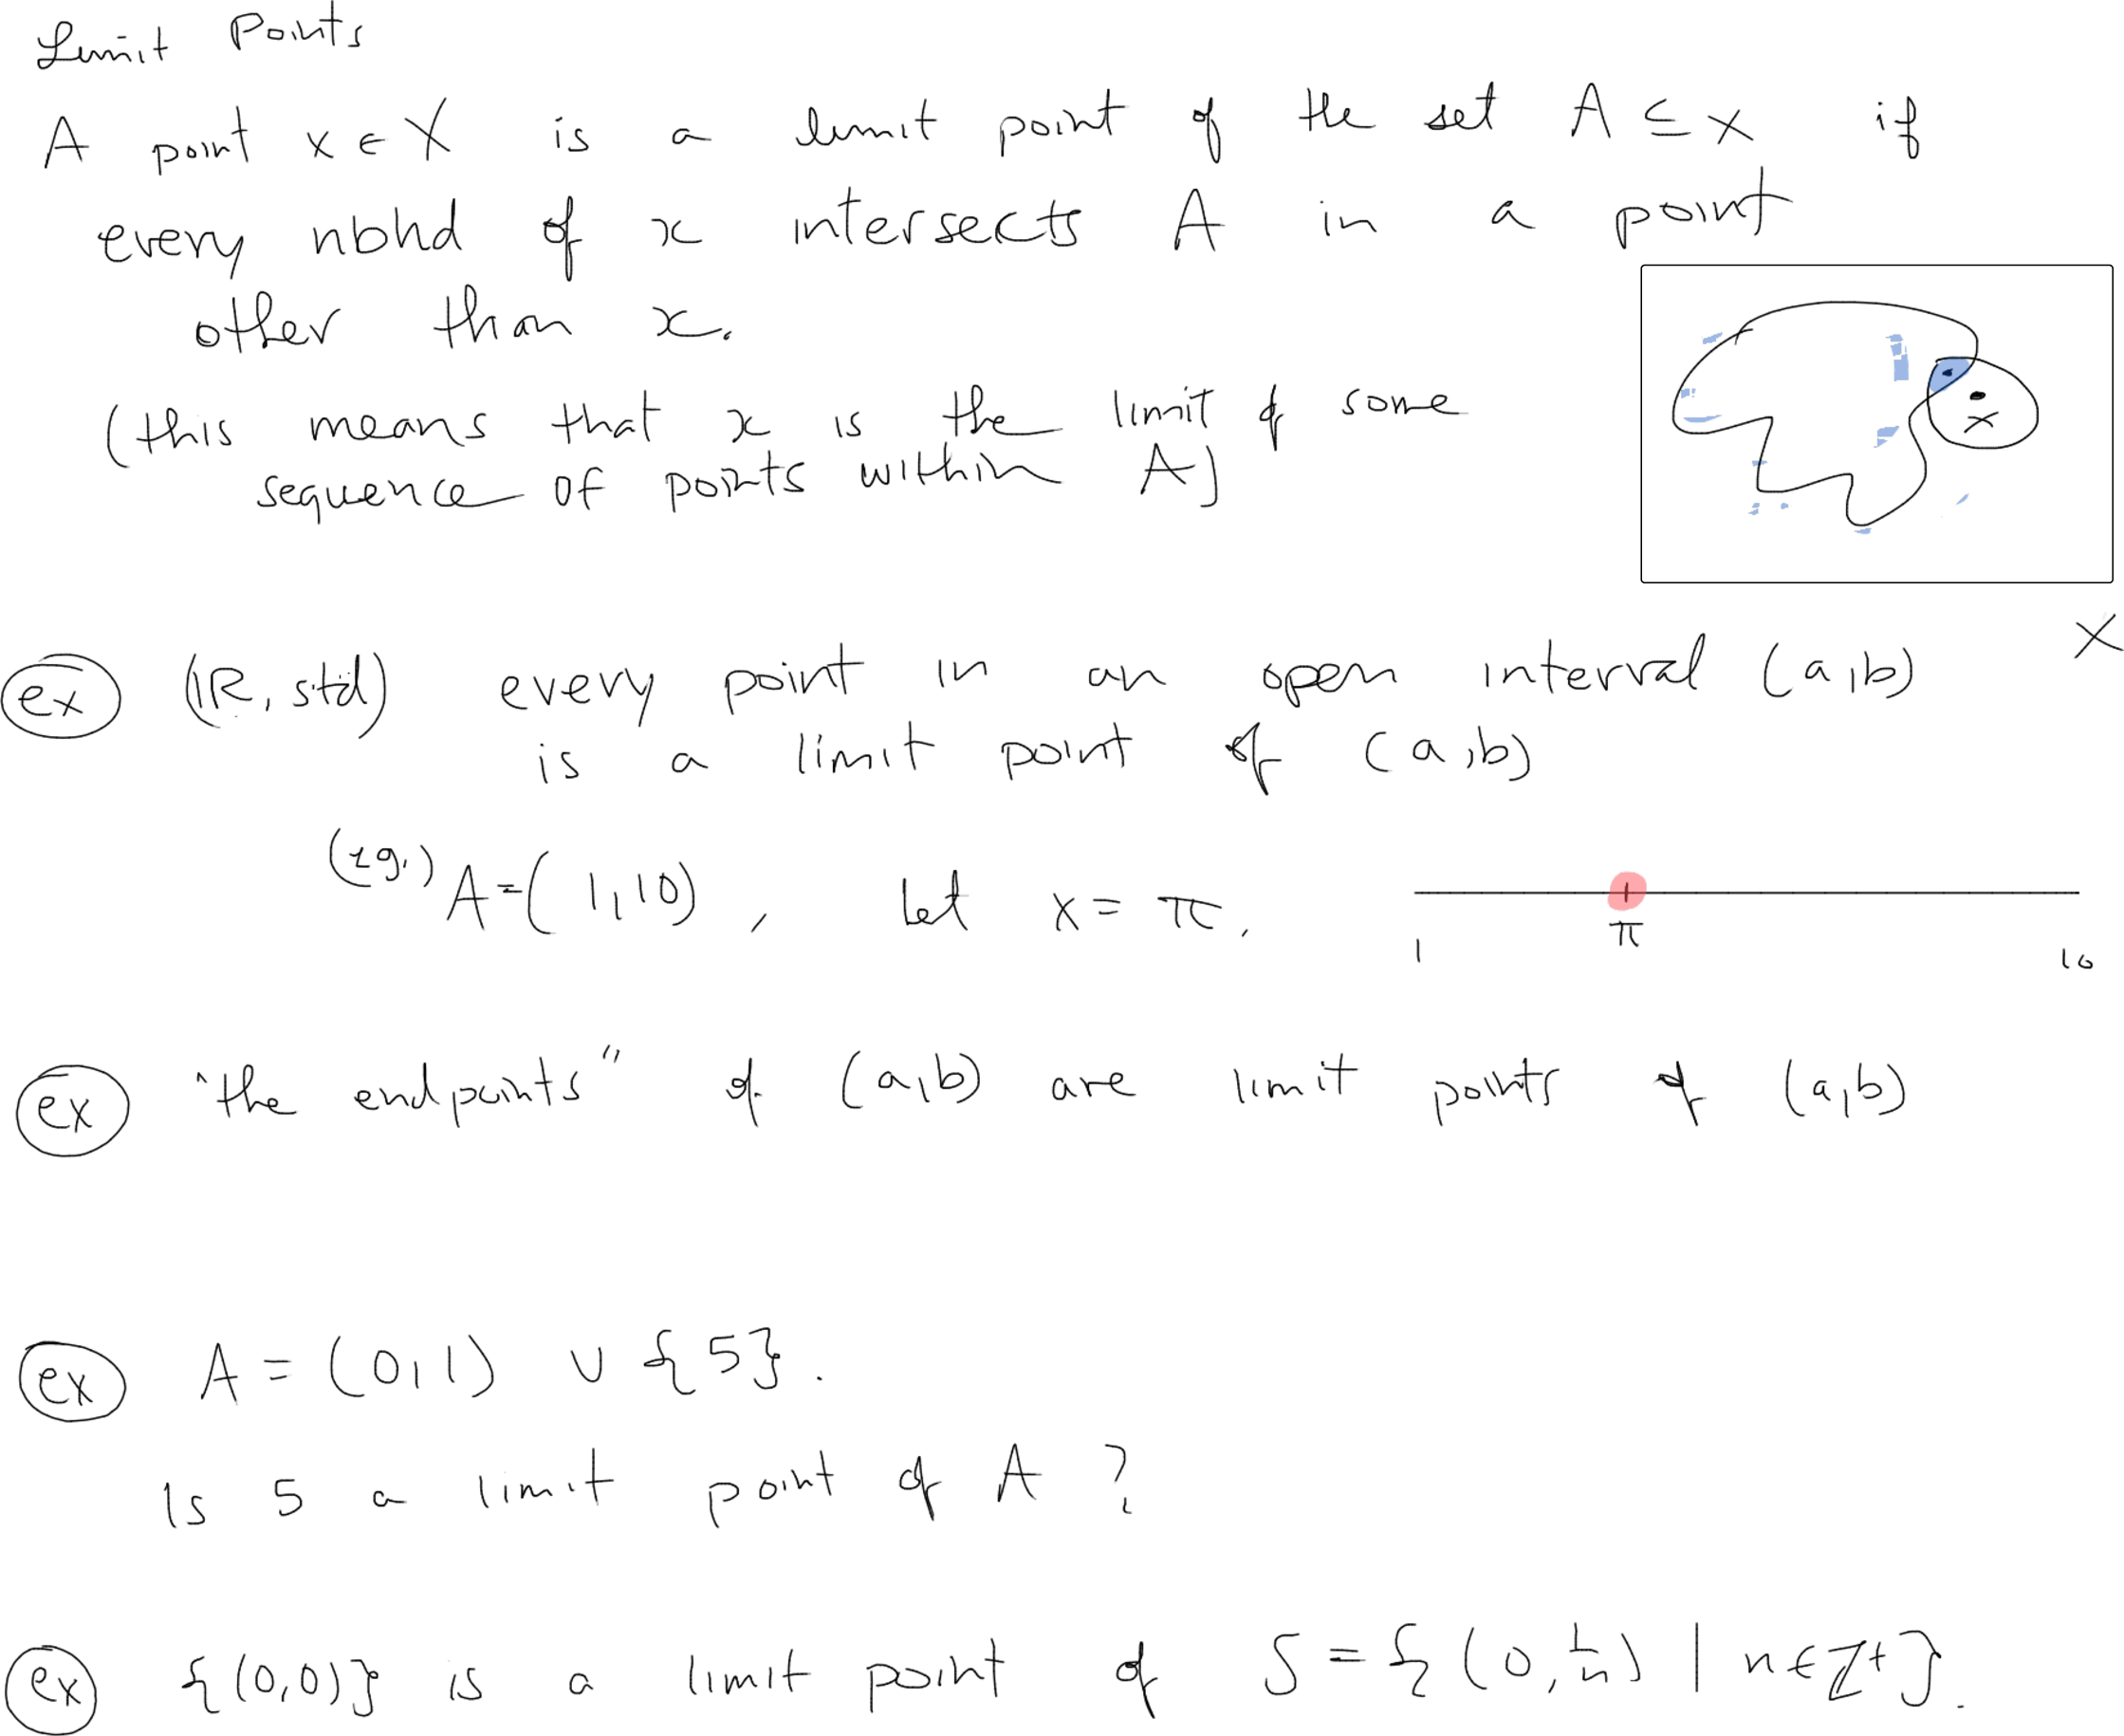 Limit Points
A point x ∈ X is a limit point of the set A ⊆ X if
every nbhd of x intersects A in a point
other than x.
(this means that x is the limit of some
sequence of points within A)
x
X
ex (ℝ, std) every point in an open interval (a,b)
is a limit point of (a,b)
(eg.) A=(1,10), Let x = π.
π
1 10
ex "the endpoints" of (a,b) are limit points of (a,b)
ex A = (0,1) ∪ {5}.
Is 5 a limit point of A ?
ex {(0,0)} is a limit point of S = {(0, 1/n) | n ∈ ℤ+}.